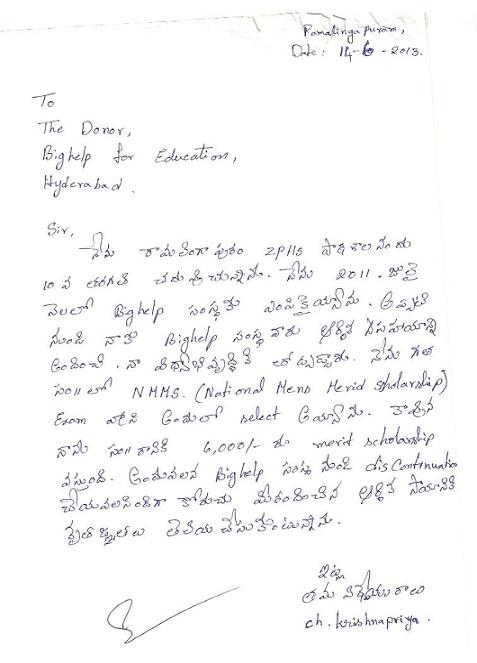 Ramalingapuram,
Date: 14-6-2013.
To
The Donor,
Bighelp for Education,
Hyderabad.
Sir,
నేను రామలింగాపురం ZPHS పాఠశాలనందు
10 వ తరగతి చదువుచున్నాను. నేను 2011. జులై
నెలలో Bighelp సంస్థకు ఎంపికైయ్యాను. అప్పటి
నుండి నాకు Bighelp సంస్థ వారు ఆర్థిక సహాయాన్ని
అందించి. నా విద్యాభివృద్ధికి తోడ్పడ్డారు. నేను గత
సం॥లో NMMS. (National Mens Merid Scholarship)
Exam వ్రాసి అందులో select అయ్యాను. కావున
నాకు సం॥రానికి 6,000/- రు merit scholarship
వస్తుంది. అందువలన Bighelp సంస్థ నుండి disContinuation
చేయవలసిందిగా కోరుచు మీరందించిన ఆర్థిక సాయానికి
కృతజ్ఞతలు తెలియచేసుకుంటున్నాను.
ఇట్లు
తమ విధేయురాలు
ch. krishnapriya.